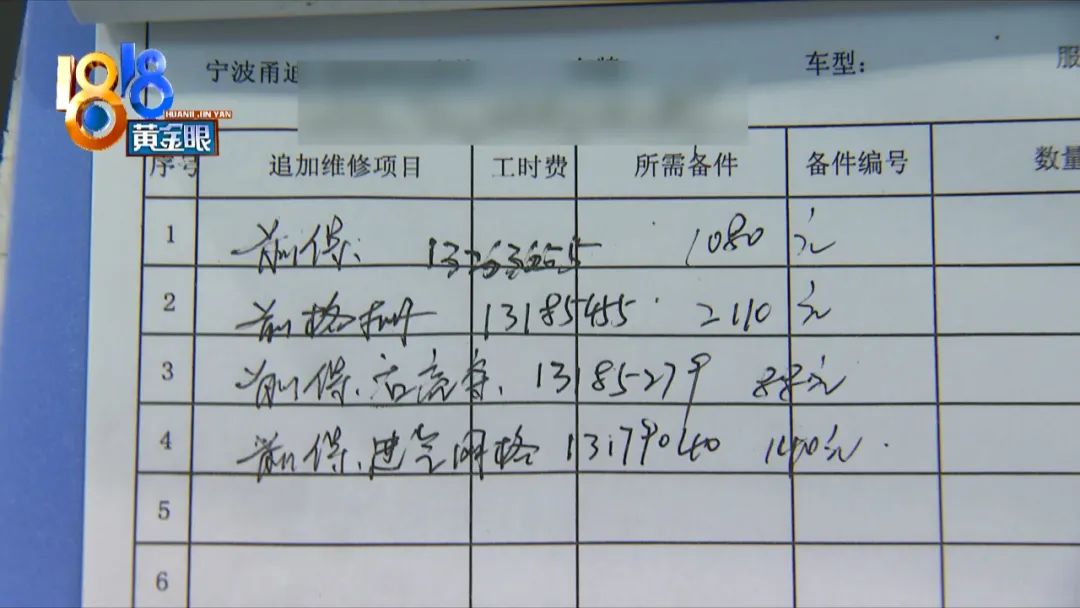 1818
HUANG JIN YAN
黄金眼
宁波甬迪 车型： 服
序号 追加维修项目 工时费 所需备件 备件编号 数量
1 前保. 1080元
2 前格栅 13185455 2110元
3 前保. 13185279 88元
4 前保. 进气网格 13179040 140元.
5
6